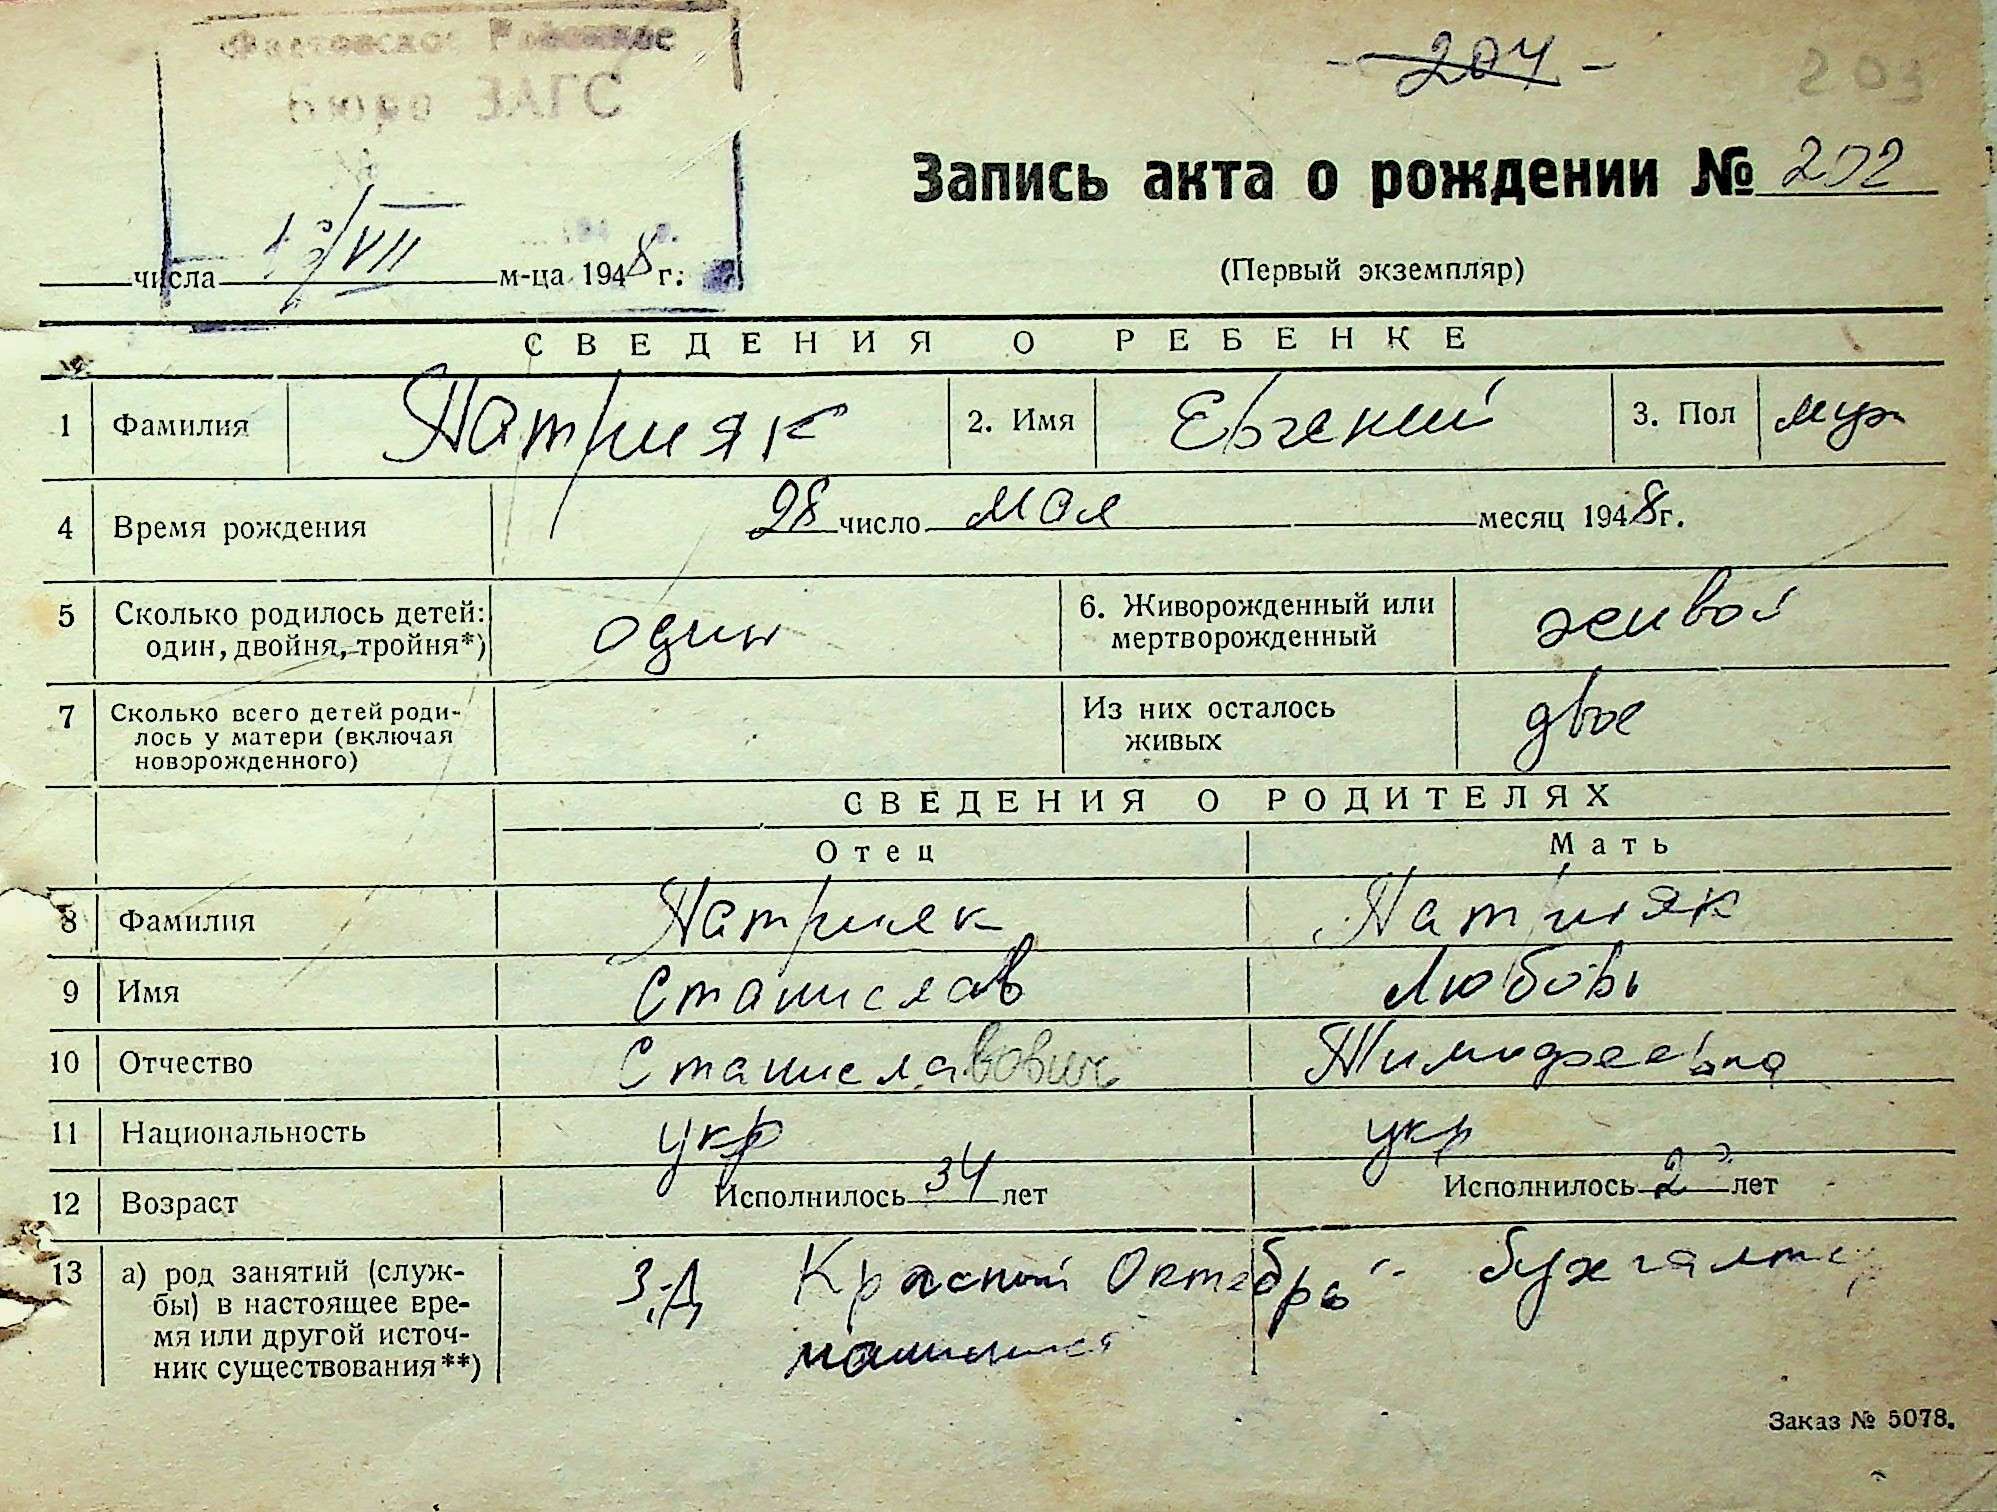 Фастовское Районное
Бюро ЗАГС
№
- 204 -
203
Запись акта о рождении № 202
числа 13/VII м-ца 1948 г.
(Первый экземпляр)
СВЕДЕНИЯ О РЕБЕНКЕ
1 Фамилия Патрияк 2. Имя Евгений 3. Пол муж
4 Время рождения 28 число мая месяц 1948 г.
5 Сколько родилось детей: один 6. Живорожденный или живой
один, двойня, тройня*) мертворожденный
7 Сколько всего детей роди- Из них осталось двое
лось у матери (включая живых
новорожденного)
СВЕДЕНИЯ О РОДИТЕЛЯХ
Отец Мать
8 Фамилия Патрияк Патрияк
9 Имя Станислав Любовь
10 Отчество Станиславович Тимофеевна
11 Национальность укр укр
12 Возраст Исполнилось 34 лет Исполнилось лет
13 а) род занятий (служ- З-д Красный Октябрь" - бухгалтер
бы) в настоящее вре- машинист
мя или другой источ-
ник существования**)
Заказ № 5078.